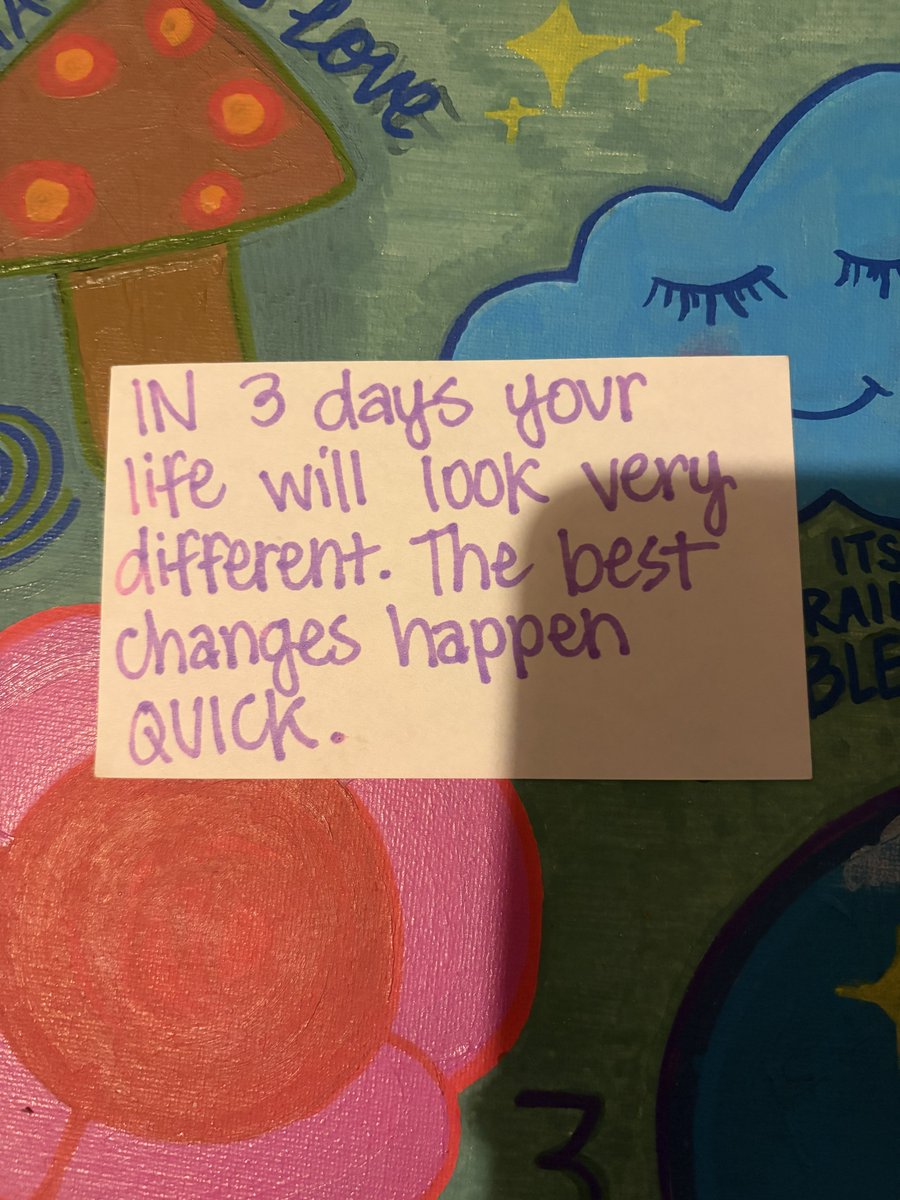 love
IN 3 days your
life will look very
different. The best
changes happen
QUICK.
ITS
RAI
BLE
3